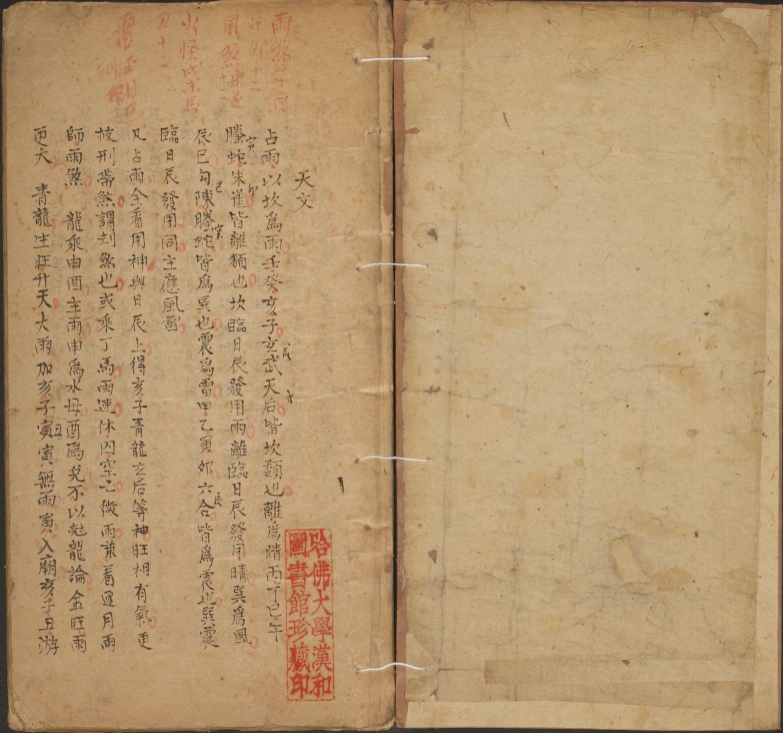 天文
占雨以坎為雨壬癸亥子玄武天后皆坎類也離為晴丙丁巳午
螣蛇朱雀皆離類也坎臨日辰發用雨離臨日辰發用晴巽為風
辰巳勾陳螣蛇皆為巽也震為雷甲乙寅卯六合皆為震也巽震
臨日辰發用同主應風雷
凡占雨全看用神與日辰上得亥子青龍玄后等神旺相有氣更
被刑帶煞謂刦煞也或乘丁馬雨速休囚空亡微雨兼看逐月雨
師雨煞 龍乘申酉主雨申為水母酉為兌不以尅龍論金旺雨
更大 青龍生旺升天大雨加亥子寅丑寅無雨寅入廟亥子丑游
哈佛大學漢和
圖書館珍藏印